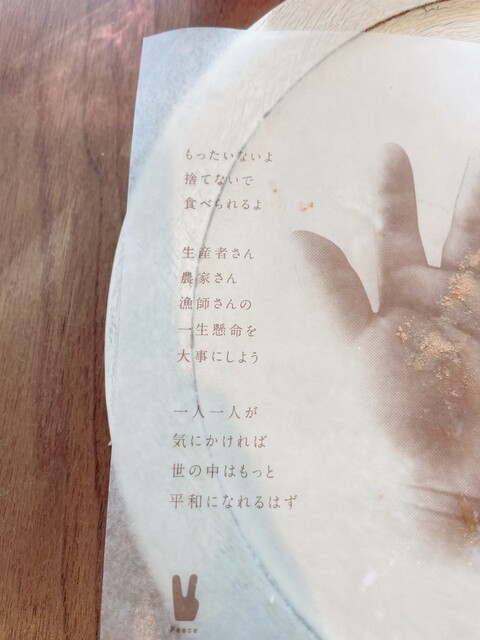 もったいないよ
捨てないで
食べられるよ
生産者さん
農家さん
漁師さんの
一生懸命を
大事にしよう
一人一人が
気にかければ
世の中はもっと
平和になれるはず
Peace